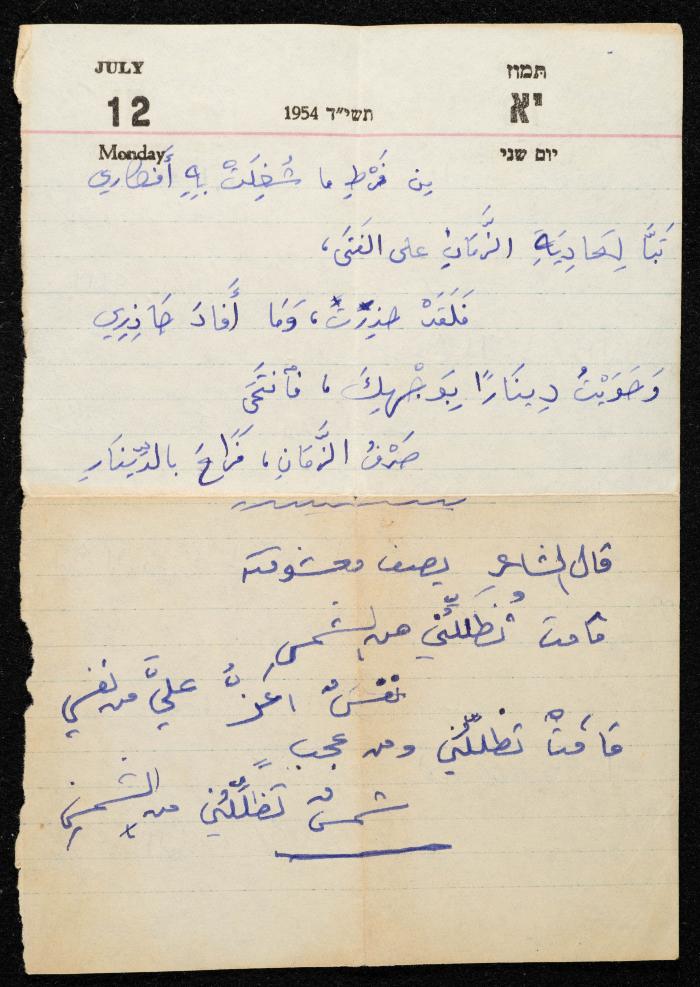 JULY תמוז
12 1954 תשי״ד י״א
Monday יום שני
مِن فَرْطِ ما شُغِلَتْ بِهِ أَفكاري
تَبًّا لِعَادِيَةِ الزَّمَانِ على الفَتَى،
فَلَقَدْ حذِرْتُ، وَمَا أَفَادَ حَاذِرِي
وَحَوَيْتُ دِينَارًا بِوَجْهِكَ، فٱنتَحَى
صَرْفُ الزَّمَانِ، فَرَاحَ بالدِّينَارِ
قال الشاعر يصف معشوقته
قامت تُظَلِّلُني من الشمس
نَفْسٌ اعَزُّ عليَّ من نفسي
قامتْ تظلّلني ومن عجبٍ
شمسٌ تظَلِّلُني من الشمسِ